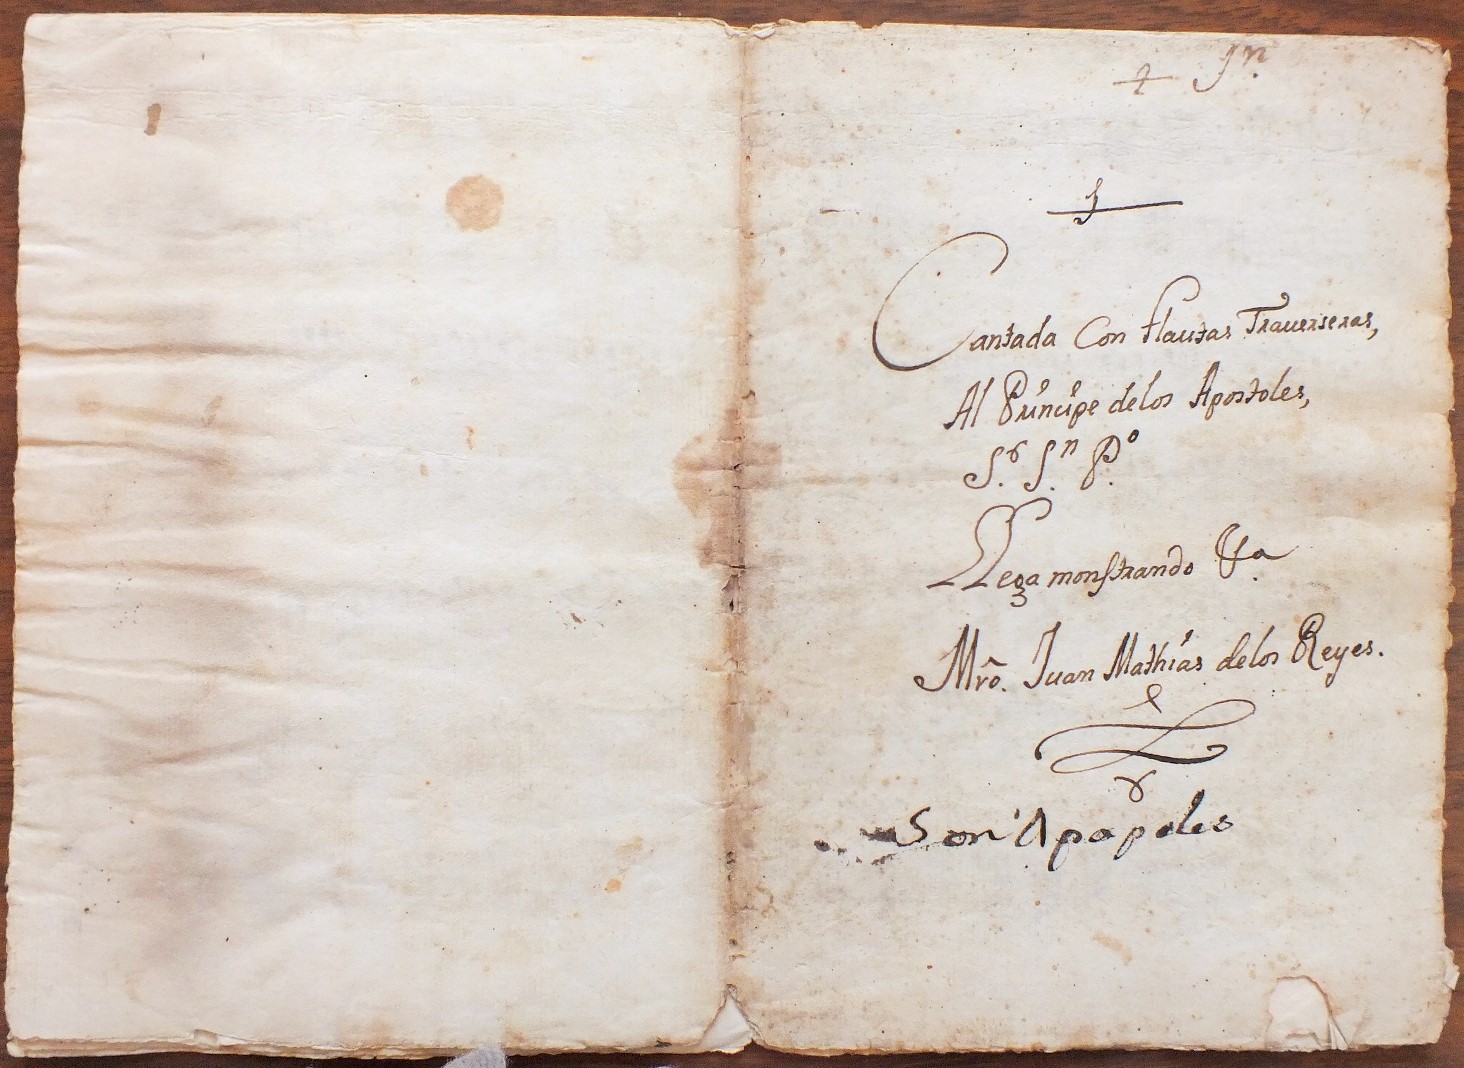 Cantada Con flautas Trauerseras,
Al Principe delos Apostoles,
S.r S.n P.o
Llega monstrando &.a
Mrõ. Juan Mathias delos Reyes.
Son papeles